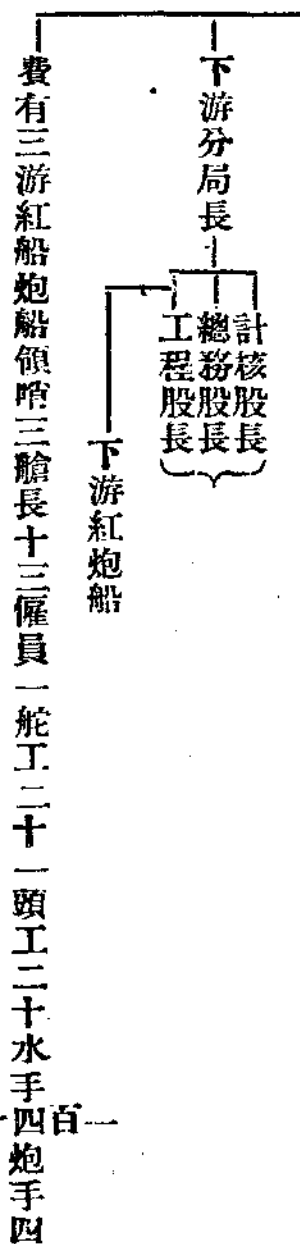 下游分局長
計核股長
總務股長
工程股長
下游紅炮船
費有三游紅船炮船領哨三艙長十三僱員一舵工二十一頭工二十水手四百一炮手四